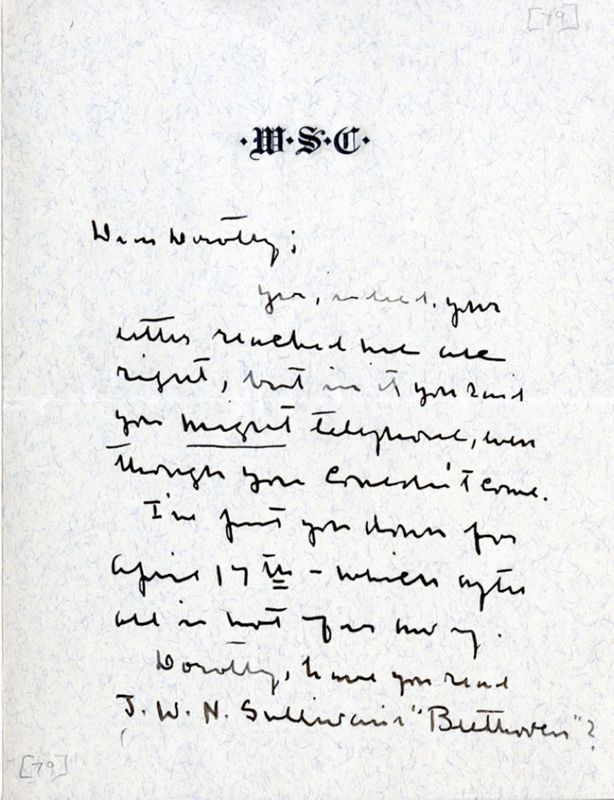 [79]
·W·S·C·
Dear Dorothy;
Yes, indeed, your
letter reached me all
right, but in it you said
you might telephone, even
though you couldn't come.
I've put you down for
April 17th – which after
all is not
Dorothy, have you read
J. W. N. Sullivan's "Beethoven"?
[79]